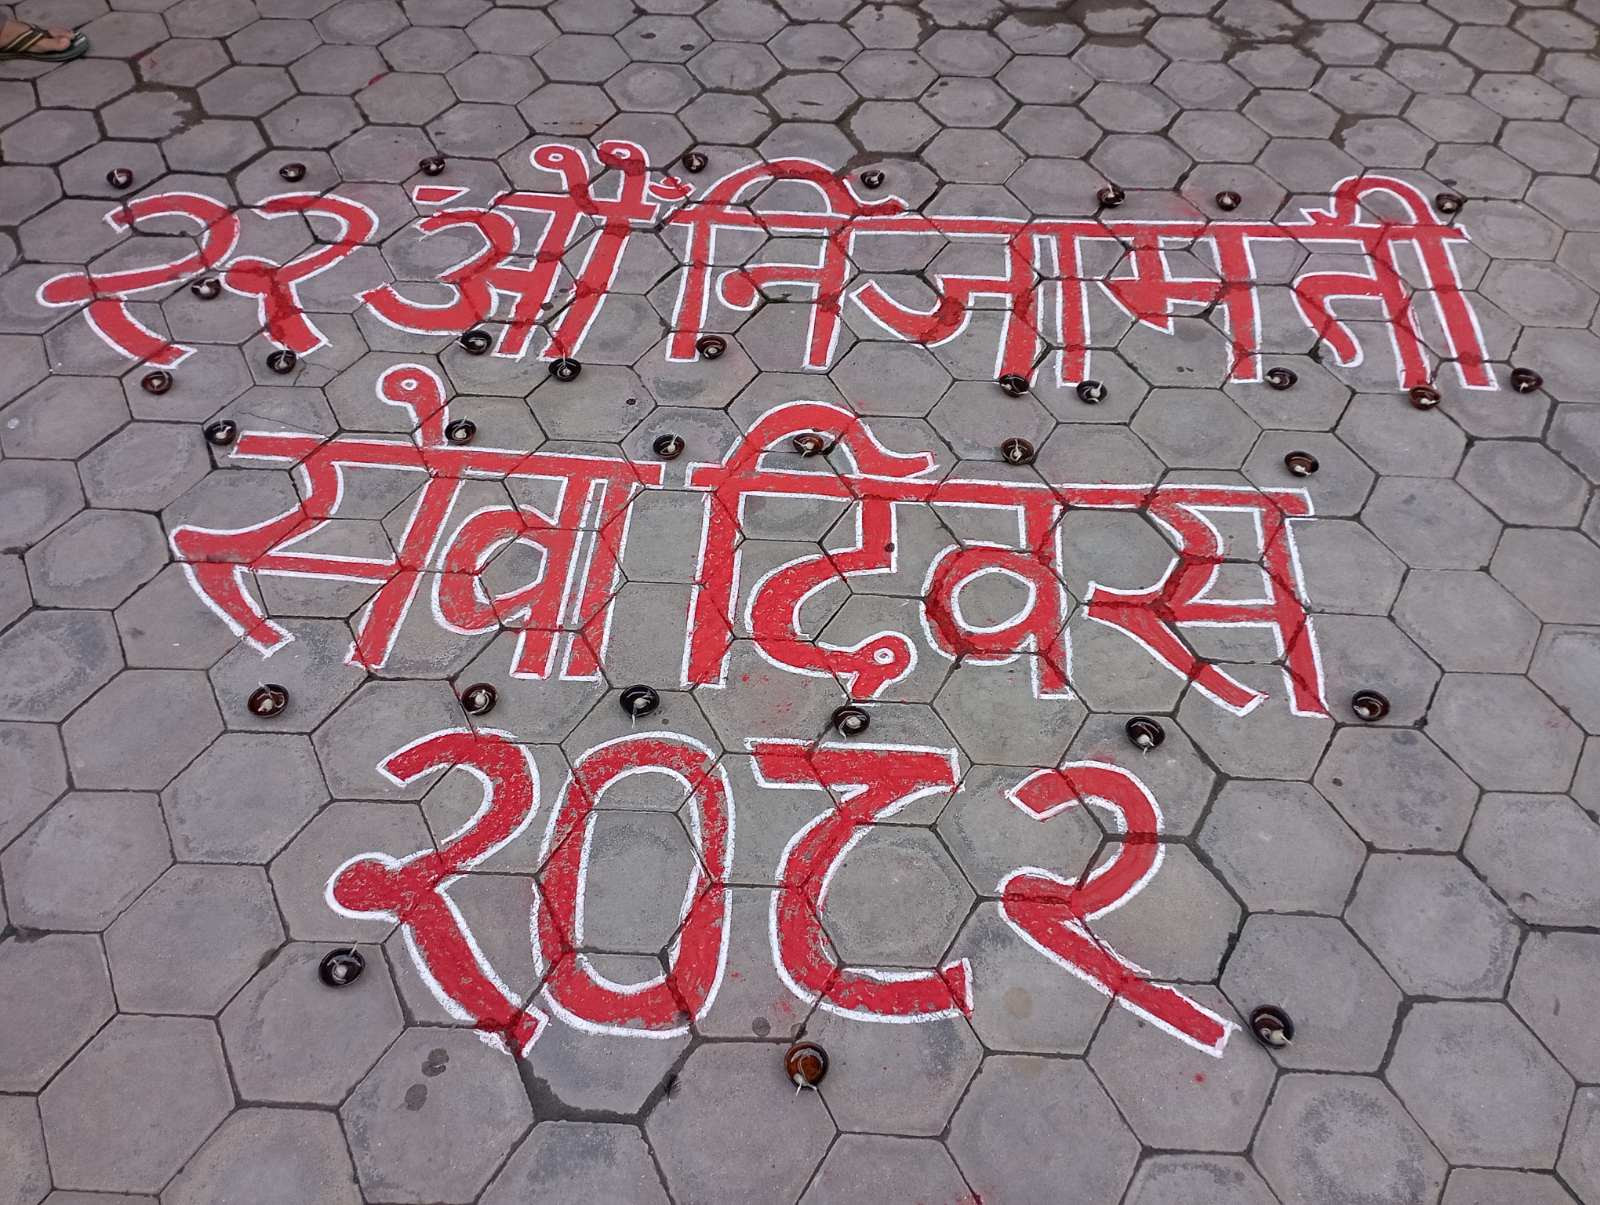 २२औँ निजामती
सेवा दिवस
२०८२